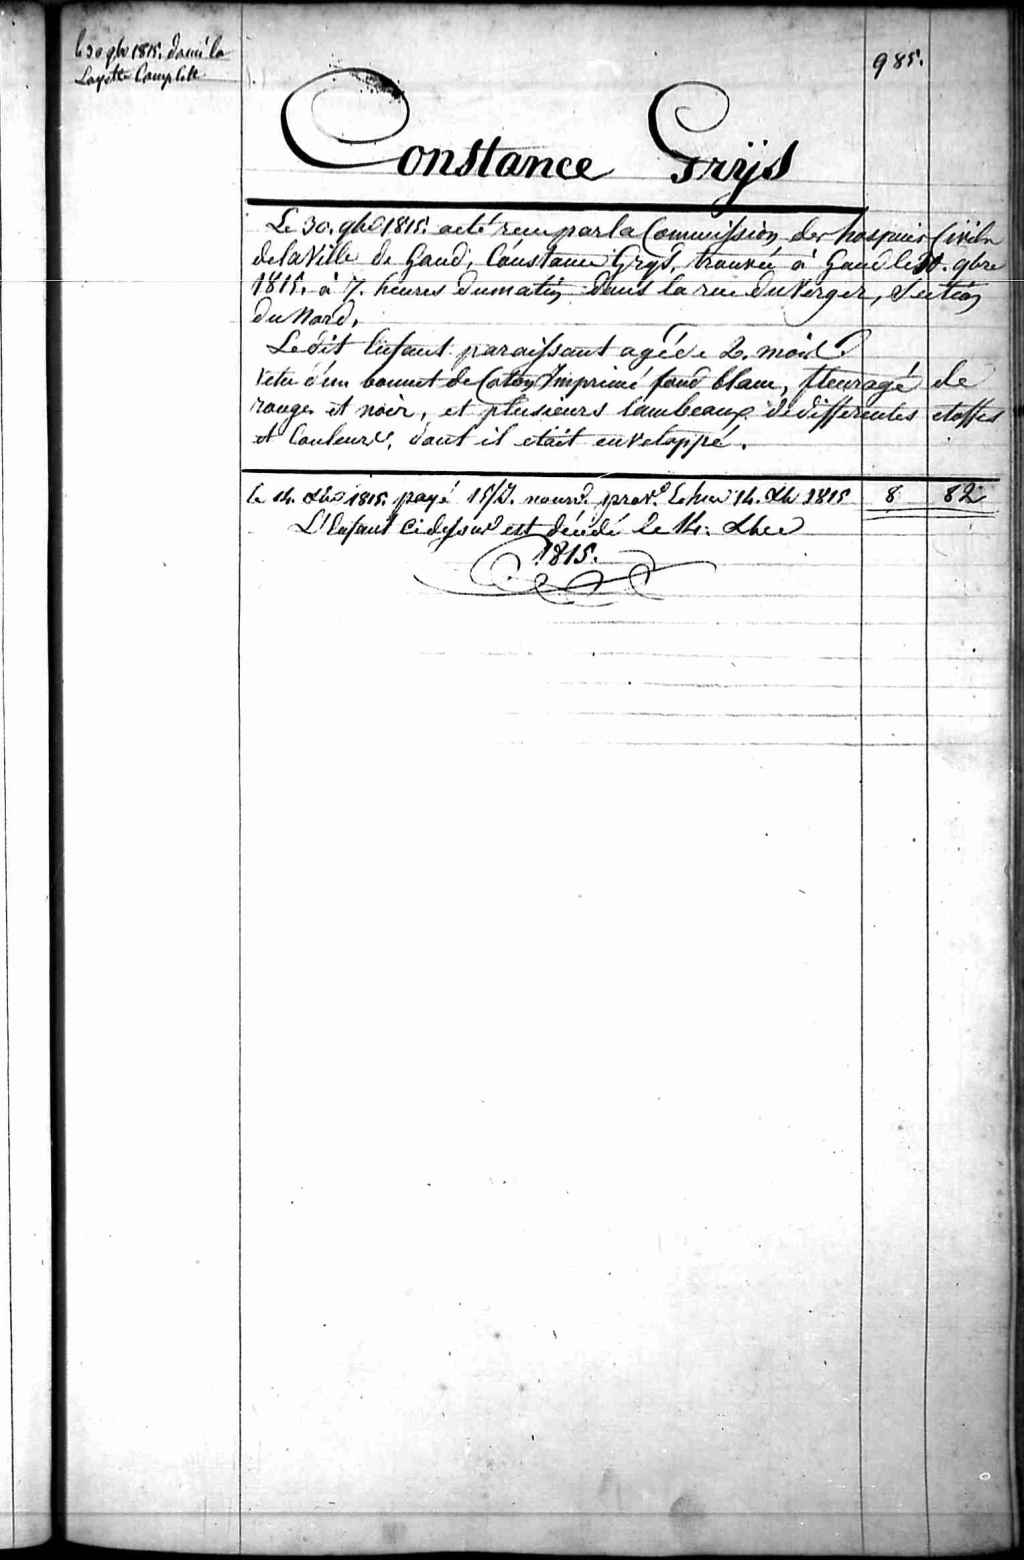 le 30 9bre 1815. donné la
Layette Complette
985.
Constance Grÿs
Le 30. 9bre 1815. a eté recu par la Commission des hospices Civils
de la Ville de Gand, Constance Grÿs, trouvée à Gand le 30. 9bre
1815. à 7. heures du matin dans la rue du Verger, Section
du Nord.
Le dit Enfant paraissant agé de 2. mois
Vetu d'un bonnet de Coton Imprimé fond blanc, fleuragé de
rouge et noir, et plusieurs lambeaux de differentes etoffes
et Couleurs, dont il etait enveloppé.
le 14. Xbre 1815. payé 15/J. nourd. prov.e 14. Xb 1815 8 82
L'Enfant ci dessus est décédé le 14. Xbre
1815.